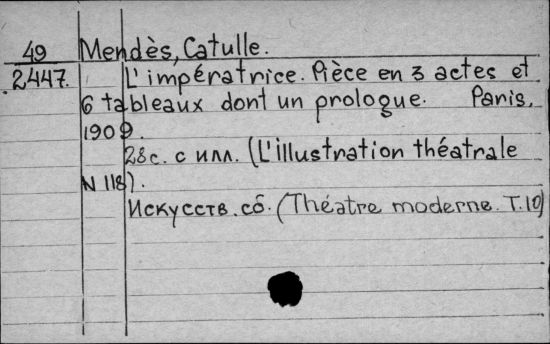 49 Mendès, Catulle.
2447. L'impératrice. Pièce en 3 actes et
6 tableaux dont un prologue. Paris,
1909.
28с. с илл. (L'illustration théatrale
N 118).
Искусств. сб. (Théatre moderne. T.10)